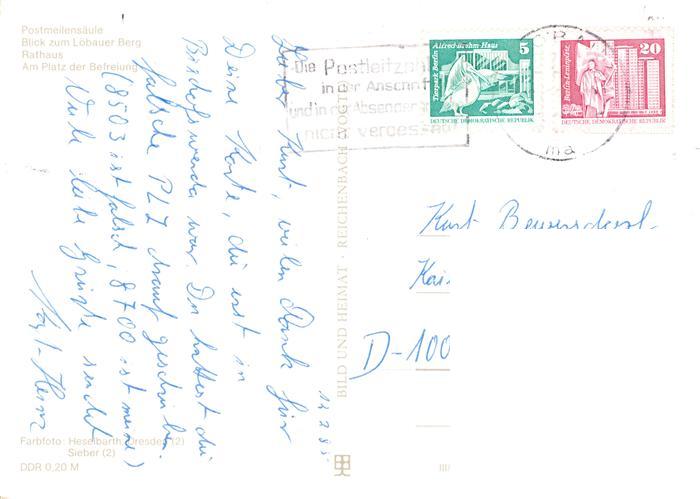 Postmeilensäule
Blick zum Löbauer Berg
Rathaus
Am Platz der Befreiung
Lieber Kurt, vielen Dank für
Deine Karte, die erst in
Bischofswerda war. Du hattest die
falsche PLZ drauf geschrieben.
(8503 ist falsch, 8700 ist meine)
Viele liebe Grüße sendet
Karl-Heinz
Farbfoto: Heselbarth, Dresden (2)
Sieber (2)
DDR 0,20 M
BILD UND HEIMAT · REICHENBACH (VOGTL)
Die Postleitzahl
in der Anschrift
und in der Absender
nicht vergessen
Alfred-Brehm-Haus
5
Tierpark Berlin
DEUTSCHE DEMOKRATISCHE REPUBLIK
20
Berlin-Leninplatz
DEUTSCHE DEMOKRATISCHE REPUBLIK
ma
Kurt
Kai
D-100